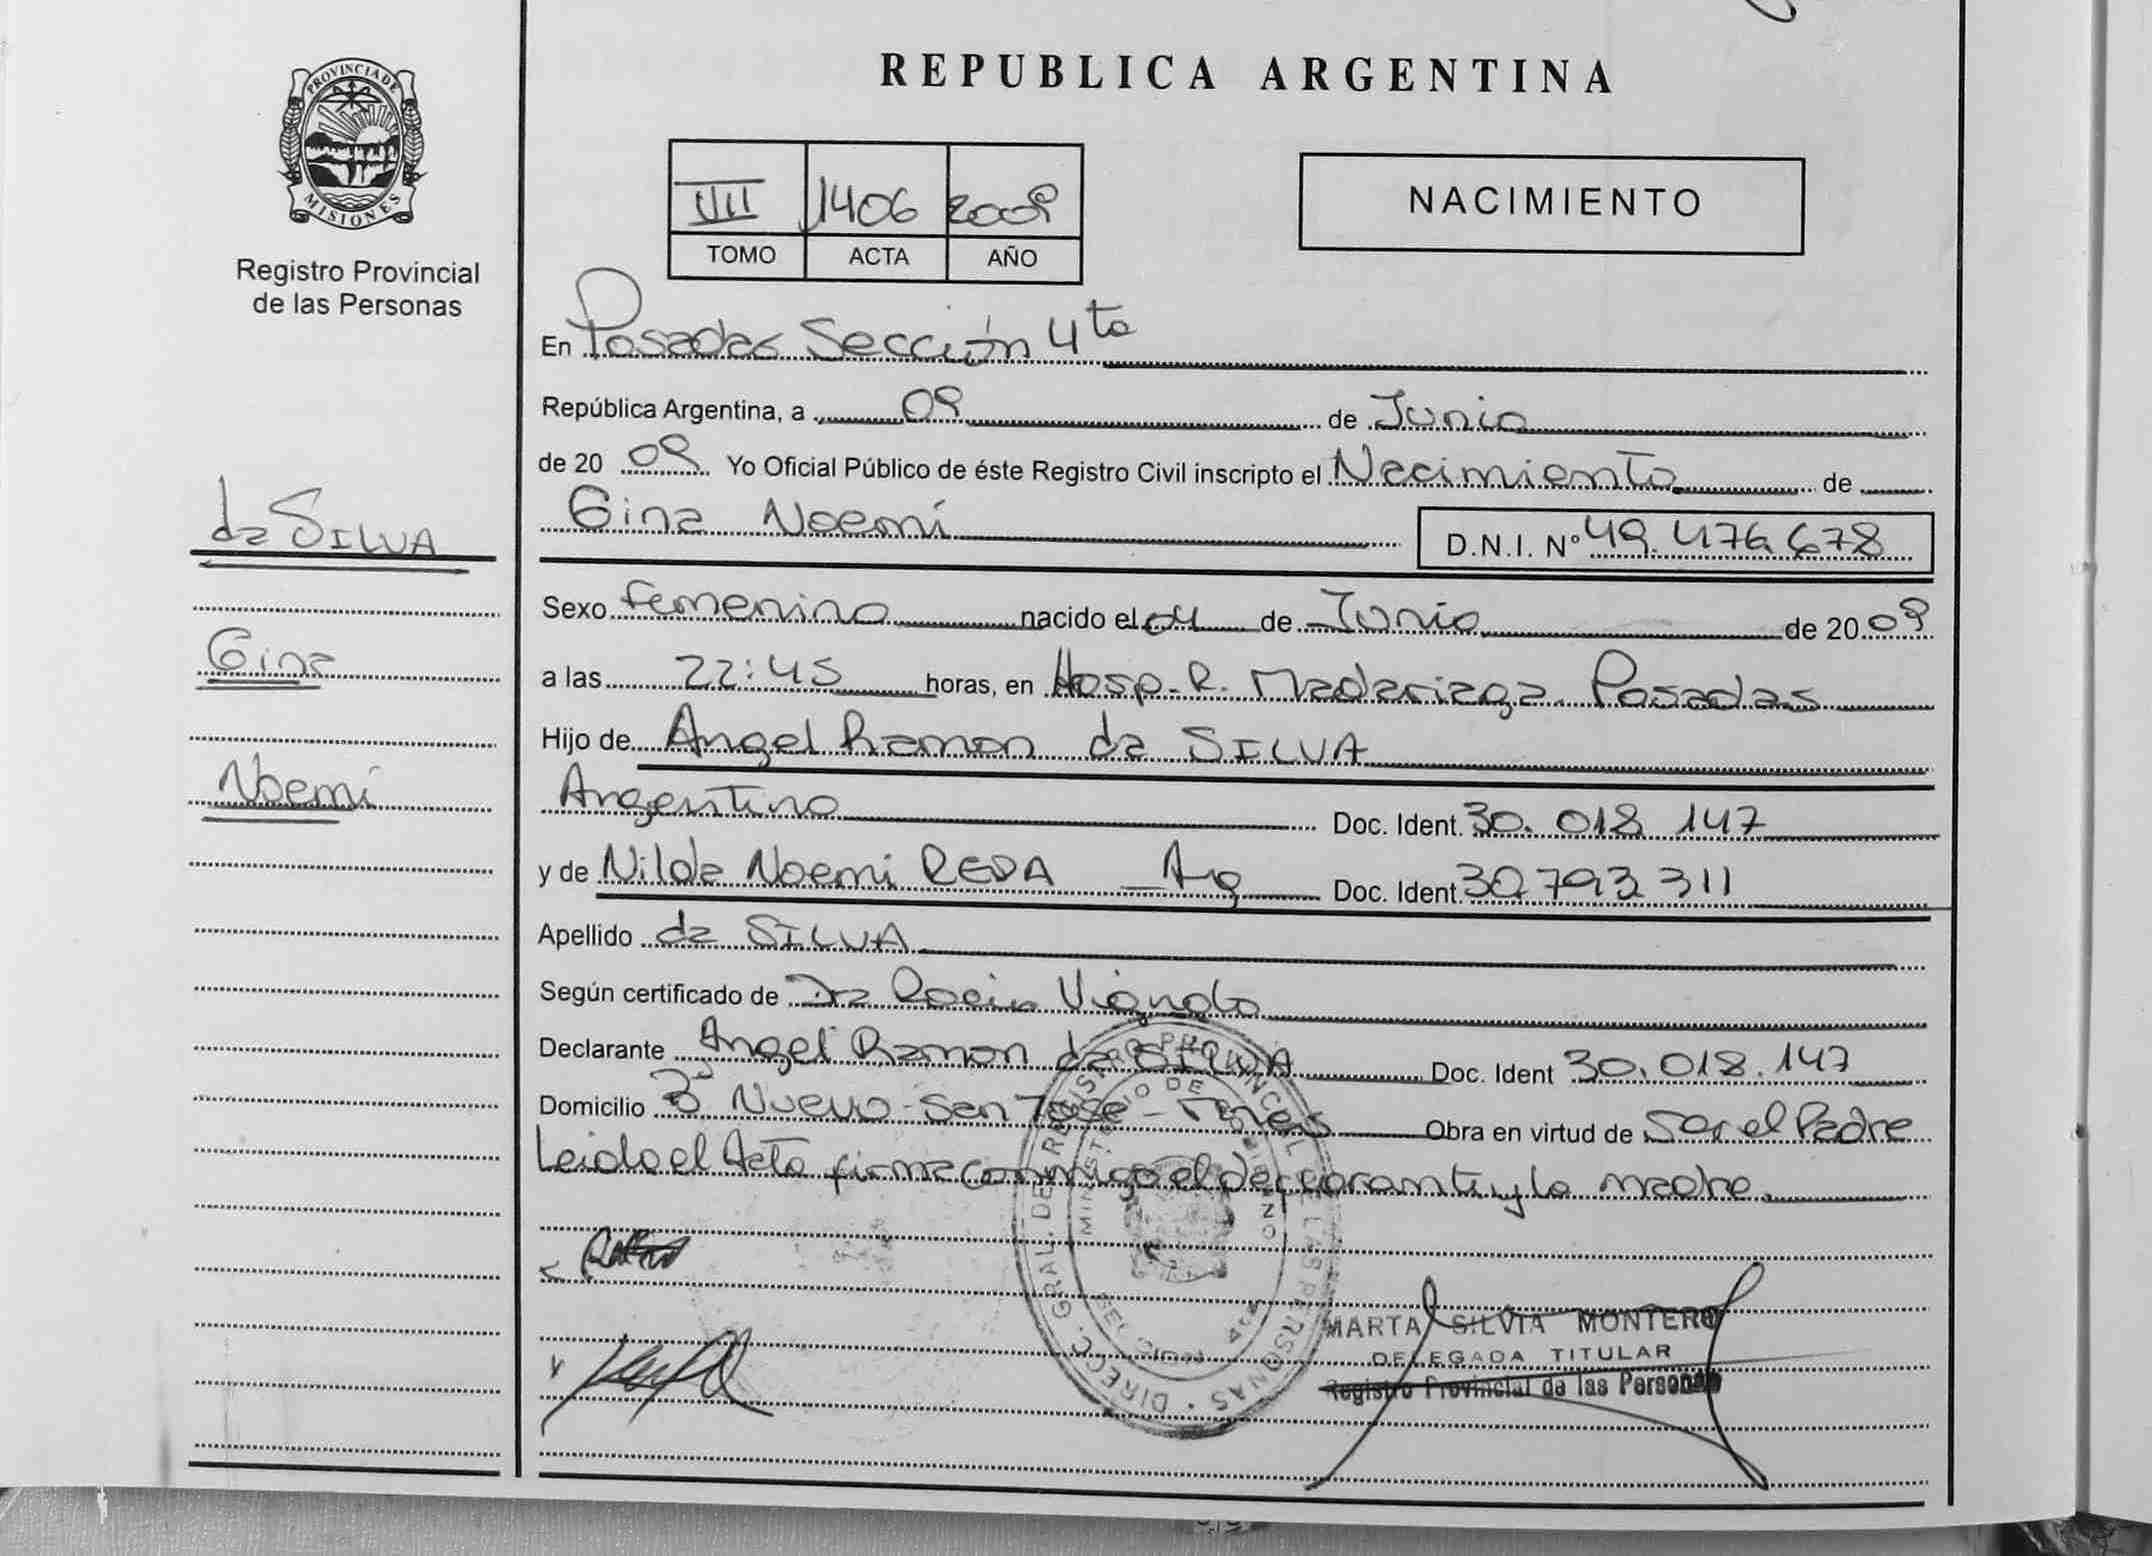 PROVINCIA DE
MISIONES
Registro Provincial
de las Personas
da SILVA
Gina
Noemí
REPUBLICA ARGENTINA
VII 1406 2009
TOMO ACTA AÑO
NACIMIENTO
En Posadas Sección 4ta
República Argentina, a 09 de Junio
de 20 09 Yo Oficial Público de éste Registro Civil inscripto el Nacimiento de
Gina Noemí D.N.I. Nº 49.476.678
Sexo femenino nacido el 04 de Junio de 20 09
a las 22:45 horas, en Hosp. R. Madariaga Posadas
Hijo de Angel Ramon da SILVA
Argentino Doc. Ident. 30.018 147
y de Nilda Noemi REPA Arg Doc. Ident. 30.793 311
Apellido da SILVA
Según certificado de Dra Rocio
Declarante Angel Ramon da SILVA Doc. Ident 30.018.147
Domicilio Bº Nuevo - San Jose - Mnes Obra en virtud de Ser el Padre
Leido el Acta firma conmigo el declarante y la madre
DIRECC. GRAL. DE REGISTRO PROVINCIAL DE LAS PERSONAS
MINISTERIO DE GOBIERNO
MARTA SILVIA MONTERO
DELEGADA TITULAR
Registro Provincial de las Personas